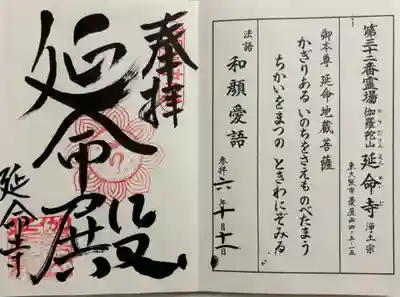 第三十二番霊場 伽羅陀山 延命寺 浄土宗
東大阪市菱屋西四ノ五ー一五
御本尊 延命地蔵菩薩
かぎりある いのちをさえも のべたまう
ちかいをまつの ときわにぞみる
法語 和顔愛語
参拝 六年十月十一日
奉拝
延命殿
延命寺